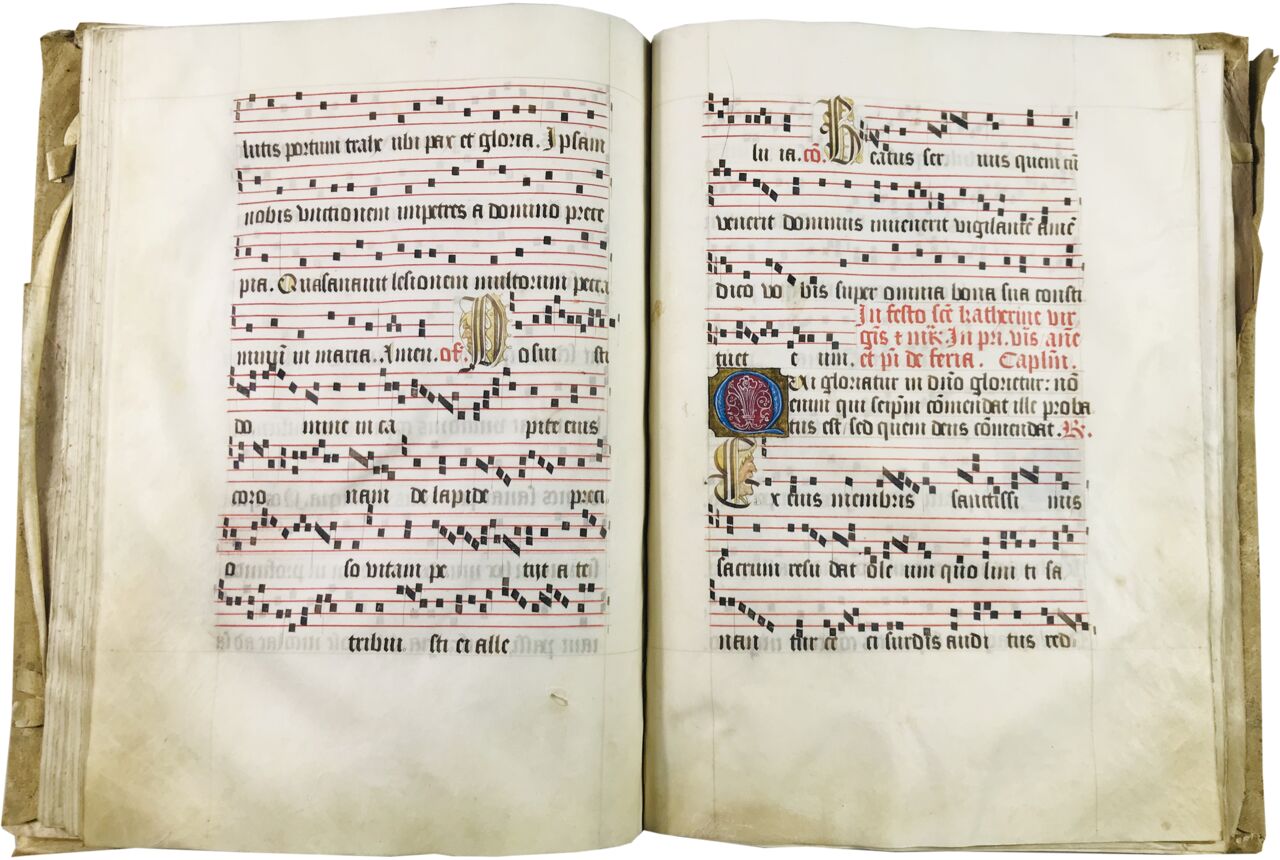 lutis portum trahe ubi pax et gloria. Ipsam
nobis unctionem impetres a domino prece
pia. Qua sanavit lesionem multorum pecca
minum in maria. Amen. of. Posui sti
do mine in ca pite eius
coro nam de lapide preci
o so vitam pe tijt a te
tribui sti ei alle
lu ia. cō. Beatus ser vus quem cū
venerit dominus invenerit vigilantē amē
dico vo bis super omnia bona sua consti
tuet e um.
In festo scē katherine vir
gīs t mr̄. In pri. vīs anē
et pī de feria. Caplm̄.
Qui gloriatur in dn̄o glorietur: nō
enim qui seipm̄ cōmendat ille proba
tus est/ sed quem deus cōmendat. R.
Ex eius membris sanctissi mis
sacrum resu dat ole um quo lini ti sa
nan tur ce ci surdis audi tus red